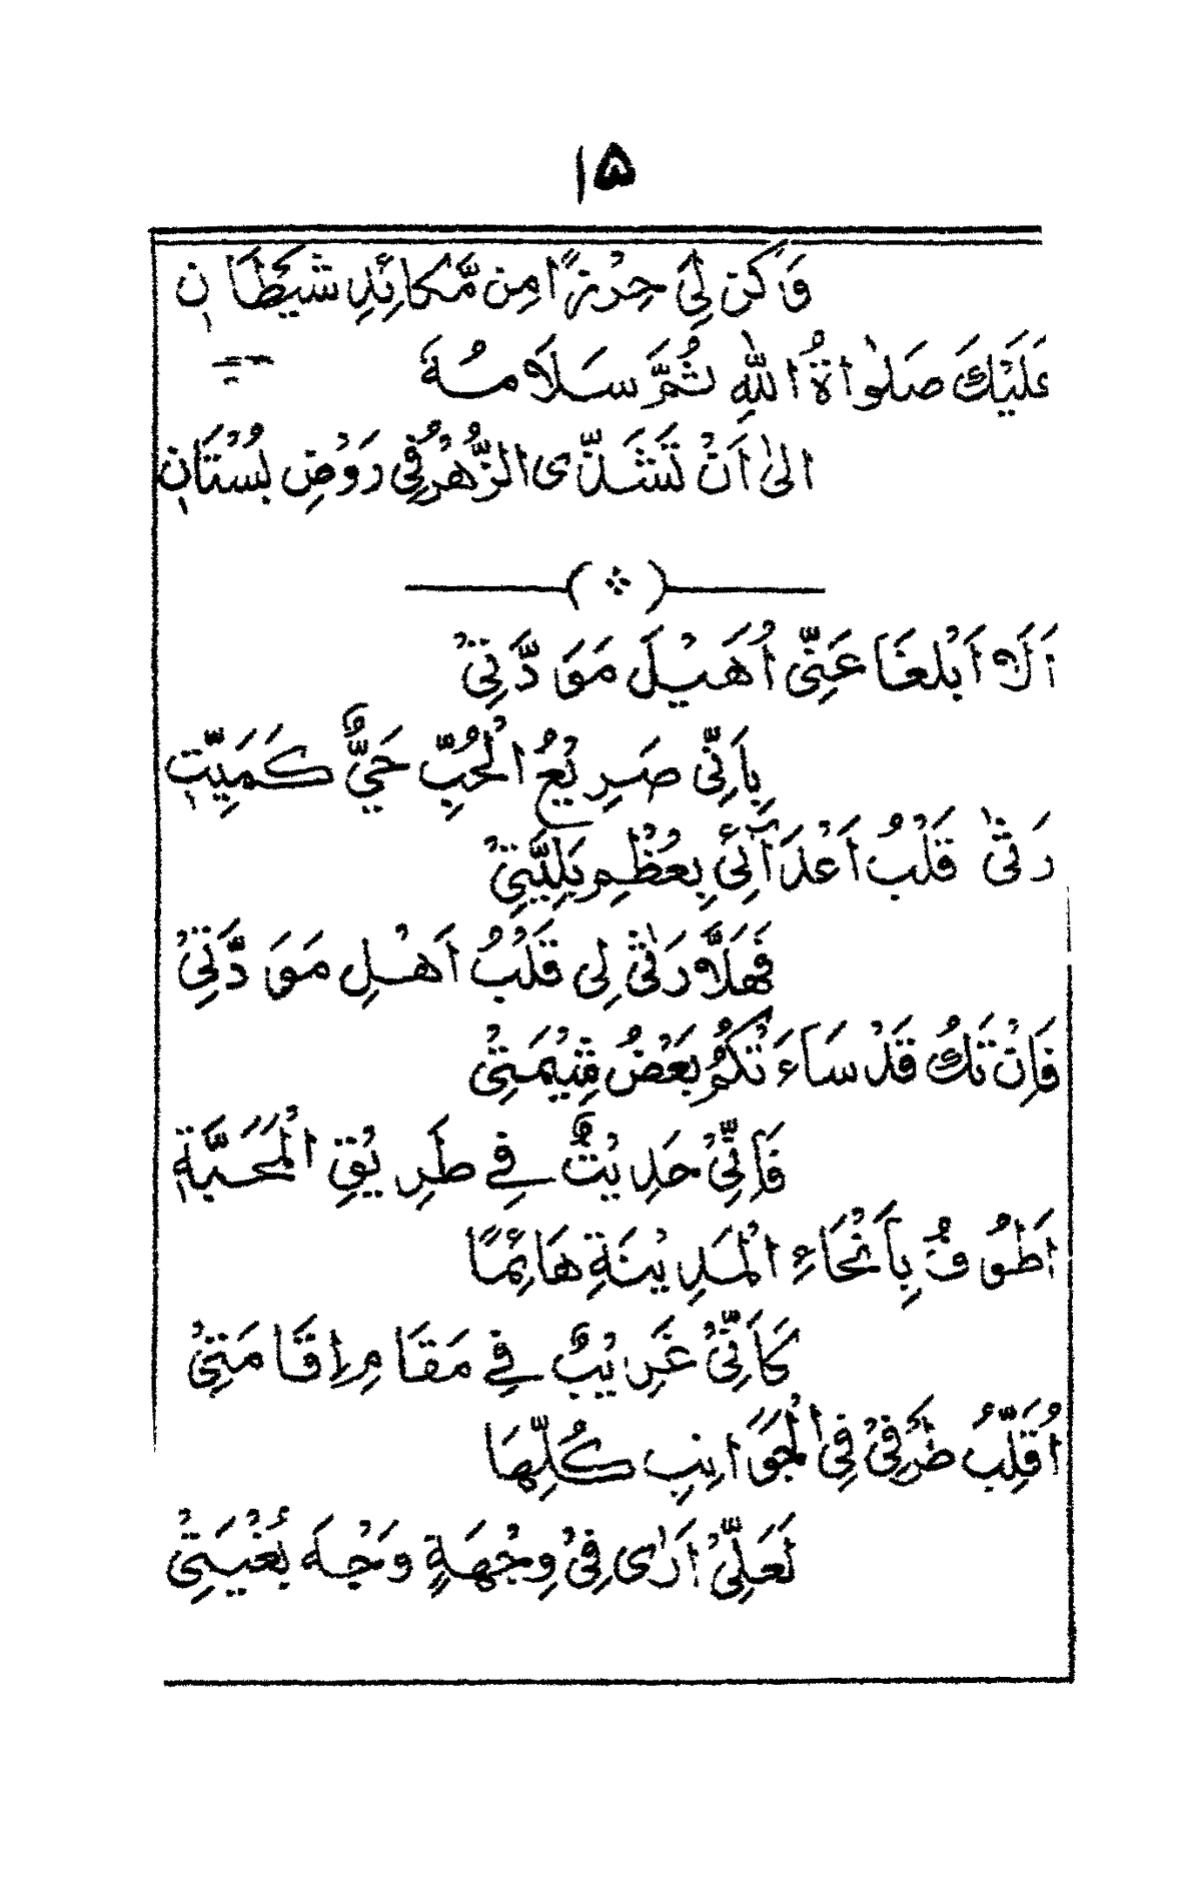 ۱۵
وَكُنْ لِيْ حِرْزًا مِن مَّكَائِدِ شَيْطَانِ
عَلَيْكَ صَلٰواةُ اللهِ ثُمَّ سَلَامُهٗ
الىٰ اَنْ تَشَذَّى الزَّهْرُ فِيْ رَوْضِ بُسْتَانِ
اَلَا اَبْلِغَا عَنِّيْ اُهَيْلَ مَوَدَّتِيْ
بِاَنِّيْ صَرِيْعُ الْحُبِّ حَيٌّ كَمَيِّتِ
رَثىٰ قَلْبُ اَعْدَآئِيْ بِعُظْمِ بَلِيَّتِيْ
فَهَلَّا رَثىٰ لِي قَلْبُ اَهْلِ مَوَدَّتِيْ
فَاِنْ تَكُ قَدْ سَاءَ تْكُمُ بَعْضُ شِيْمَتِيْ
فَاِنِّيْ حَدِيْثٌ فِي طَرِيْقِ الْمَحَبَّةِ
اَطُوْفُ بِاَنْحَاءِ الْمَدِيْنَةِ هَائِمًا
كَاَنِّيْ غَرِيْبٌ فِي مَقَامِ اِقَامَتِيْ
اُقَلِّبُ طَرْفِيْ فِي الْجَوَانِبِ كُلِّهَا
لَعَلِّيْ اَرٰى فِيْ وِجْهَةٍ وَجْهَ بُغْيَتِيْ